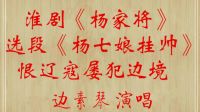 淮剧《杨家将》
选段《杨七娘挂帅》
恨辽寇屡犯边境
边素琴演唱